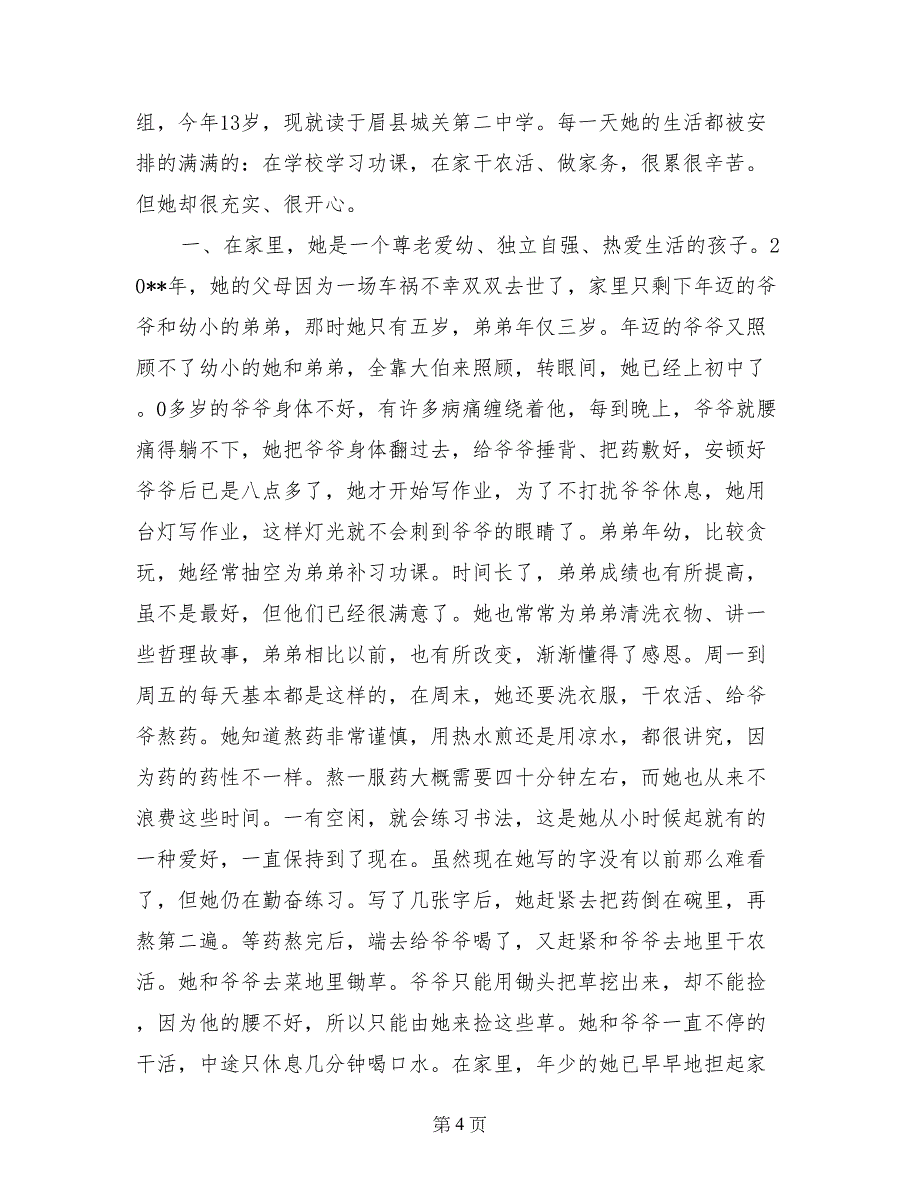 组，今年13岁，现就读于眉县城关第二中学。每一天她的生活都被安
排的满满的：在学校学习功课，在家干农活、做家务，很累很辛苦。
但她却很充实、很开心。
一、在家里，她是一个尊老爱幼、独立自强、热爱生活的孩子。2
0**年，她的父母因为一场车祸不幸双双去世了，家里只剩下年迈的爷
爷和幼小的弟弟，那时她只有五岁，弟弟年仅三岁。年迈的爷爷又照
顾不了幼小的她和弟弟，全靠大伯来照顾，转眼间，她已经上初中了
。0多岁的爷爷身体不好，有许多病痛缠绕着他，每到晚上，爷爷就腰
痛得躺不下，她把爷爷身体翻过去，给爷爷捶背、把药敷好，安顿好
爷爷后已是八点多了，她才开始写作业，为了不打扰爷爷休息，她用
台灯写作业，这样灯光就不会刺到爷爷的眼睛了。弟弟年幼，比较贪
玩，她经常抽空为弟弟补习功课。时间长了，弟弟成绩也有所提高，
虽不是最好，但他们已经很满意了。她也常常为弟弟清洗衣物、讲一
些哲理故事，弟弟相比以前，也有所改变，渐渐懂得了感恩。周一到
周五的每天基本都是这样的，在周末，她还要洗衣服，干农活、给爷
爷熬药。她知道熬药非常谨慎，用热水煎还是用凉水，都很讲究，因
为药的药性不一样。熬一服药大概需要四十分钟左右，而她也从来不
浪费这些时间。一有空闲，就会练习书法，这是她从小时候起就有的
一种爱好，一直保持到了现在。虽然现在她写的字没有以前那么难看
了，但她仍在勤奋练习。写了几张字后，她赶紧去把药倒在碗里，再
熬第二遍。等药熬完后，端去给爷爷喝了，又赶紧和爷爷去地里干农
活。她和爷爷去菜地里锄草。爷爷只能用锄头把草挖出来，却不能捡
，因为他的腰不好，所以只能由她来捡这些草。她和爷爷一直不停的
干活，中途只休息几分钟喝口水。在家里，年少的她已早早地担起家
第 4 页